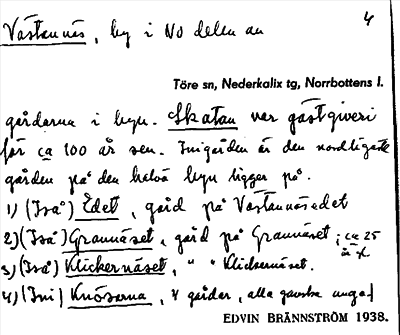 4
Västannäs, by i NO delen av
Töre sn, Nederkalix tg, Norrbottens l.
gårdarna i byn. Skatan var gästgiveri
för ca 100 år sen. Inigården är den nordligaste
gården på den halvö byn ligger på.
1) (Ivå) Edet, gård på Västannäsedet
2) (Ivå) Grannäset, gård på Grannäset; ca 25
år
3) (Ivå) Klickernäset, " " Klickernäset.
4) (Ini) Knösarna, 4 gårdar, alla ganska unga.
EDVIN BRÄNNSTRÖM 1938.